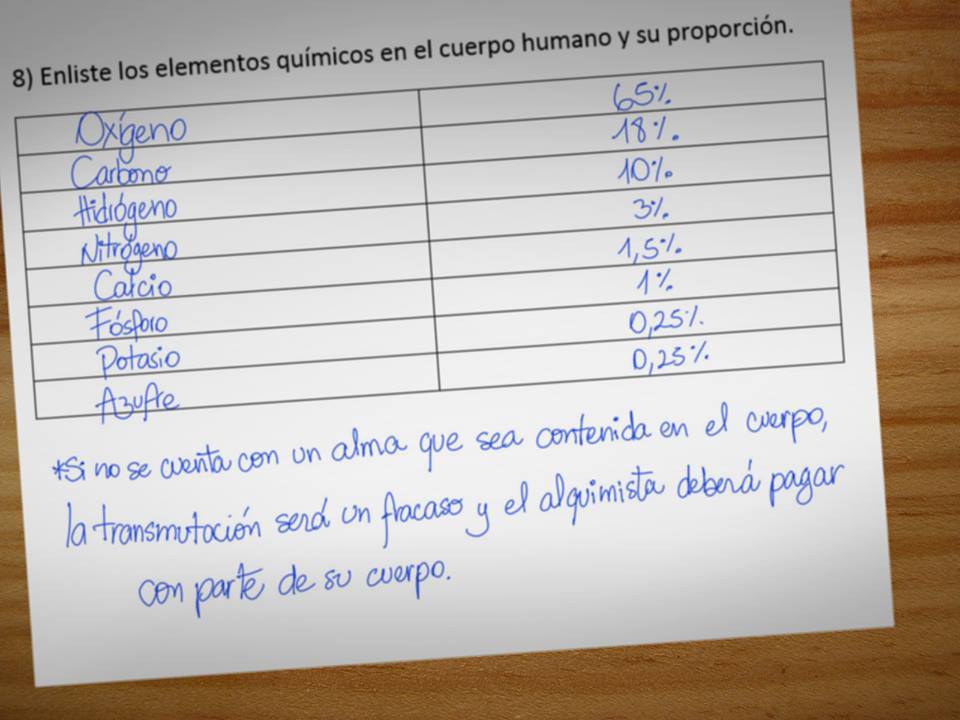 8) Enliste los elementos químicos en el cuerpo humano y su proporción.
Oxígeno 65%
Carbono 18%
Hidrógeno 10%
Nitrógeno 3%
Calcio 1,5%
Fósforo 1%
Potasio 0,25%
Azufre 0,25%
*Si no se cuenta con un alma que sea contenida en el cuerpo,
la transmutación será un fracaso y el alquimista deberá pagar
con parte de su cuerpo.